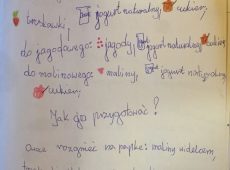 truskawki, jogurt naturalny, cukier,
do jagodowego: jagody, jogurt naturalny, cukier,
do malinowego: maliny, jogurt naturalny,
cukier.
Jak go przygotować?
rozgnieć na papkę: maliny widelcem,